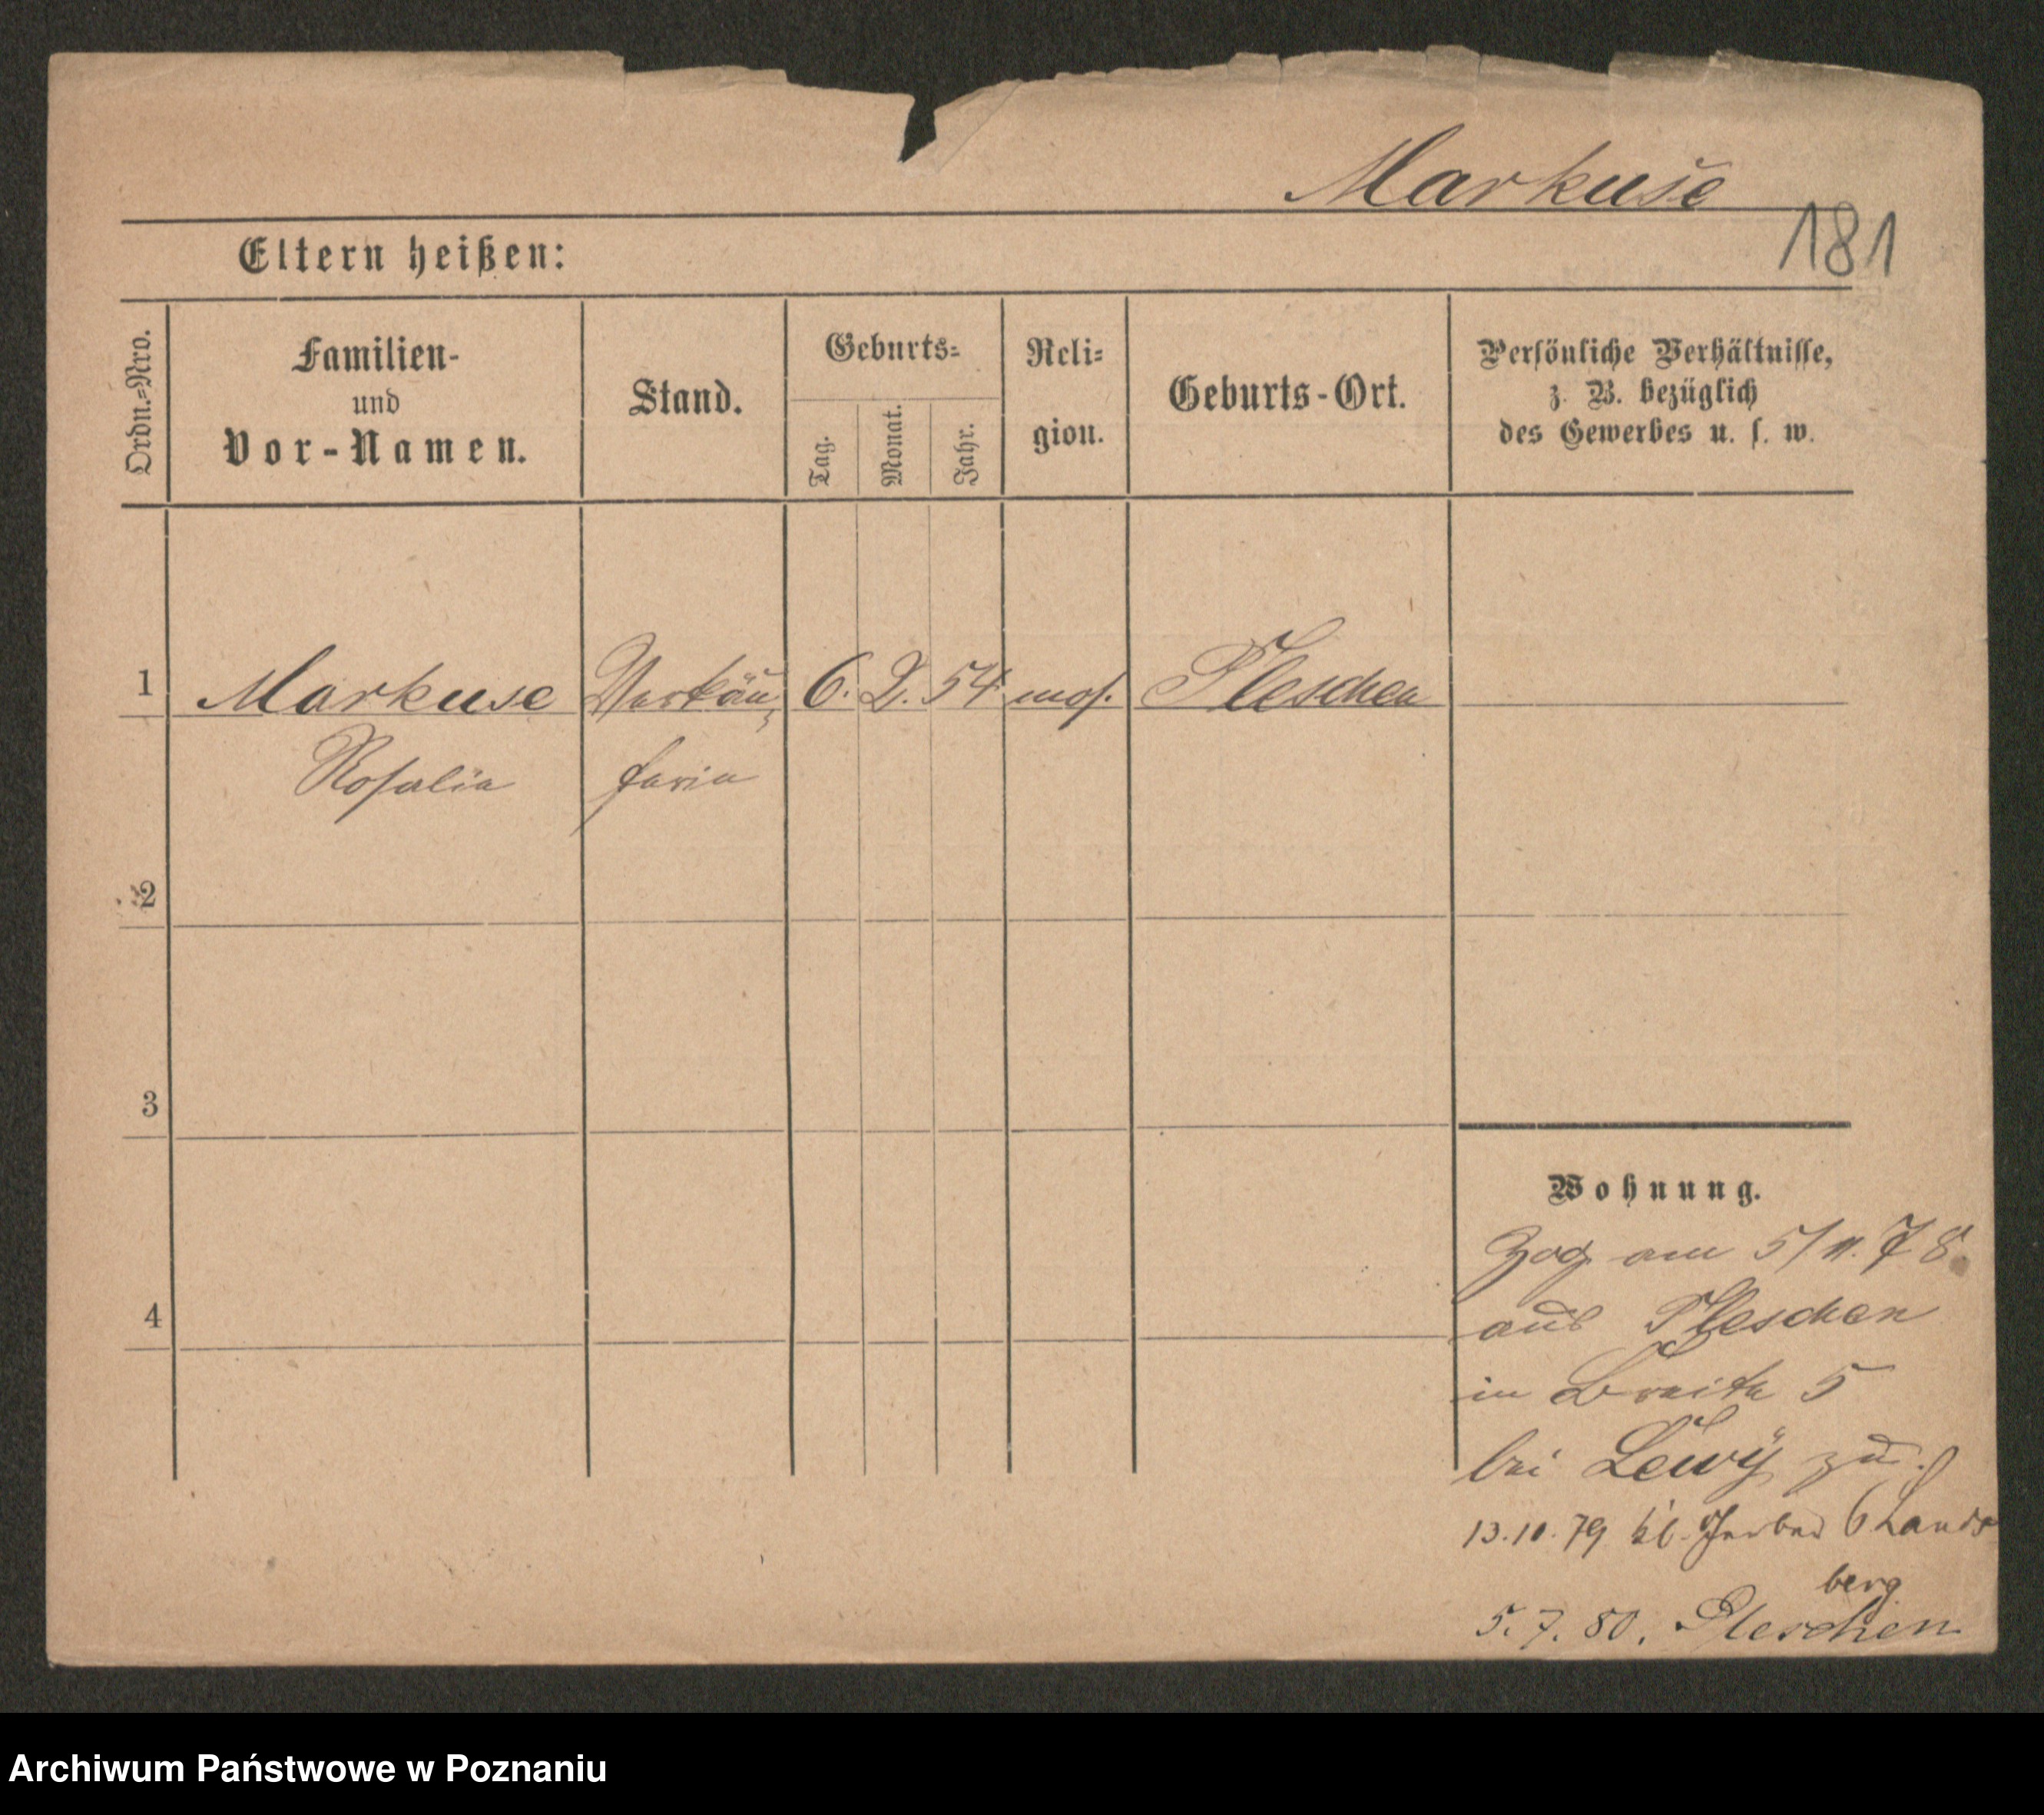 Markuse
181
Eltern heißen:
Ordn.=Nro.
Familien-
und
Vor-Namen.
Stand.
Geburts=
Tag.
Monat.
Jahr.
Reli=
gion.
Geburts-Ort.
Persönliche Verhältnisse,
z. B. bezüglich
des Gewerbes u. s. w.
1 Markuse Verkäu= 6. 2. 54 mos. Pleschen
Rosalie ferin
2
3
4
Wohnung.
Zog am 5/11. 78.
aus Pleschen
in Breite 5
bei Lewy zu.
13.10.79 kl. Gerber 6 Lands
berg
5. 7. 80. Pleschen
Archiwum Państwowe w Poznaniu